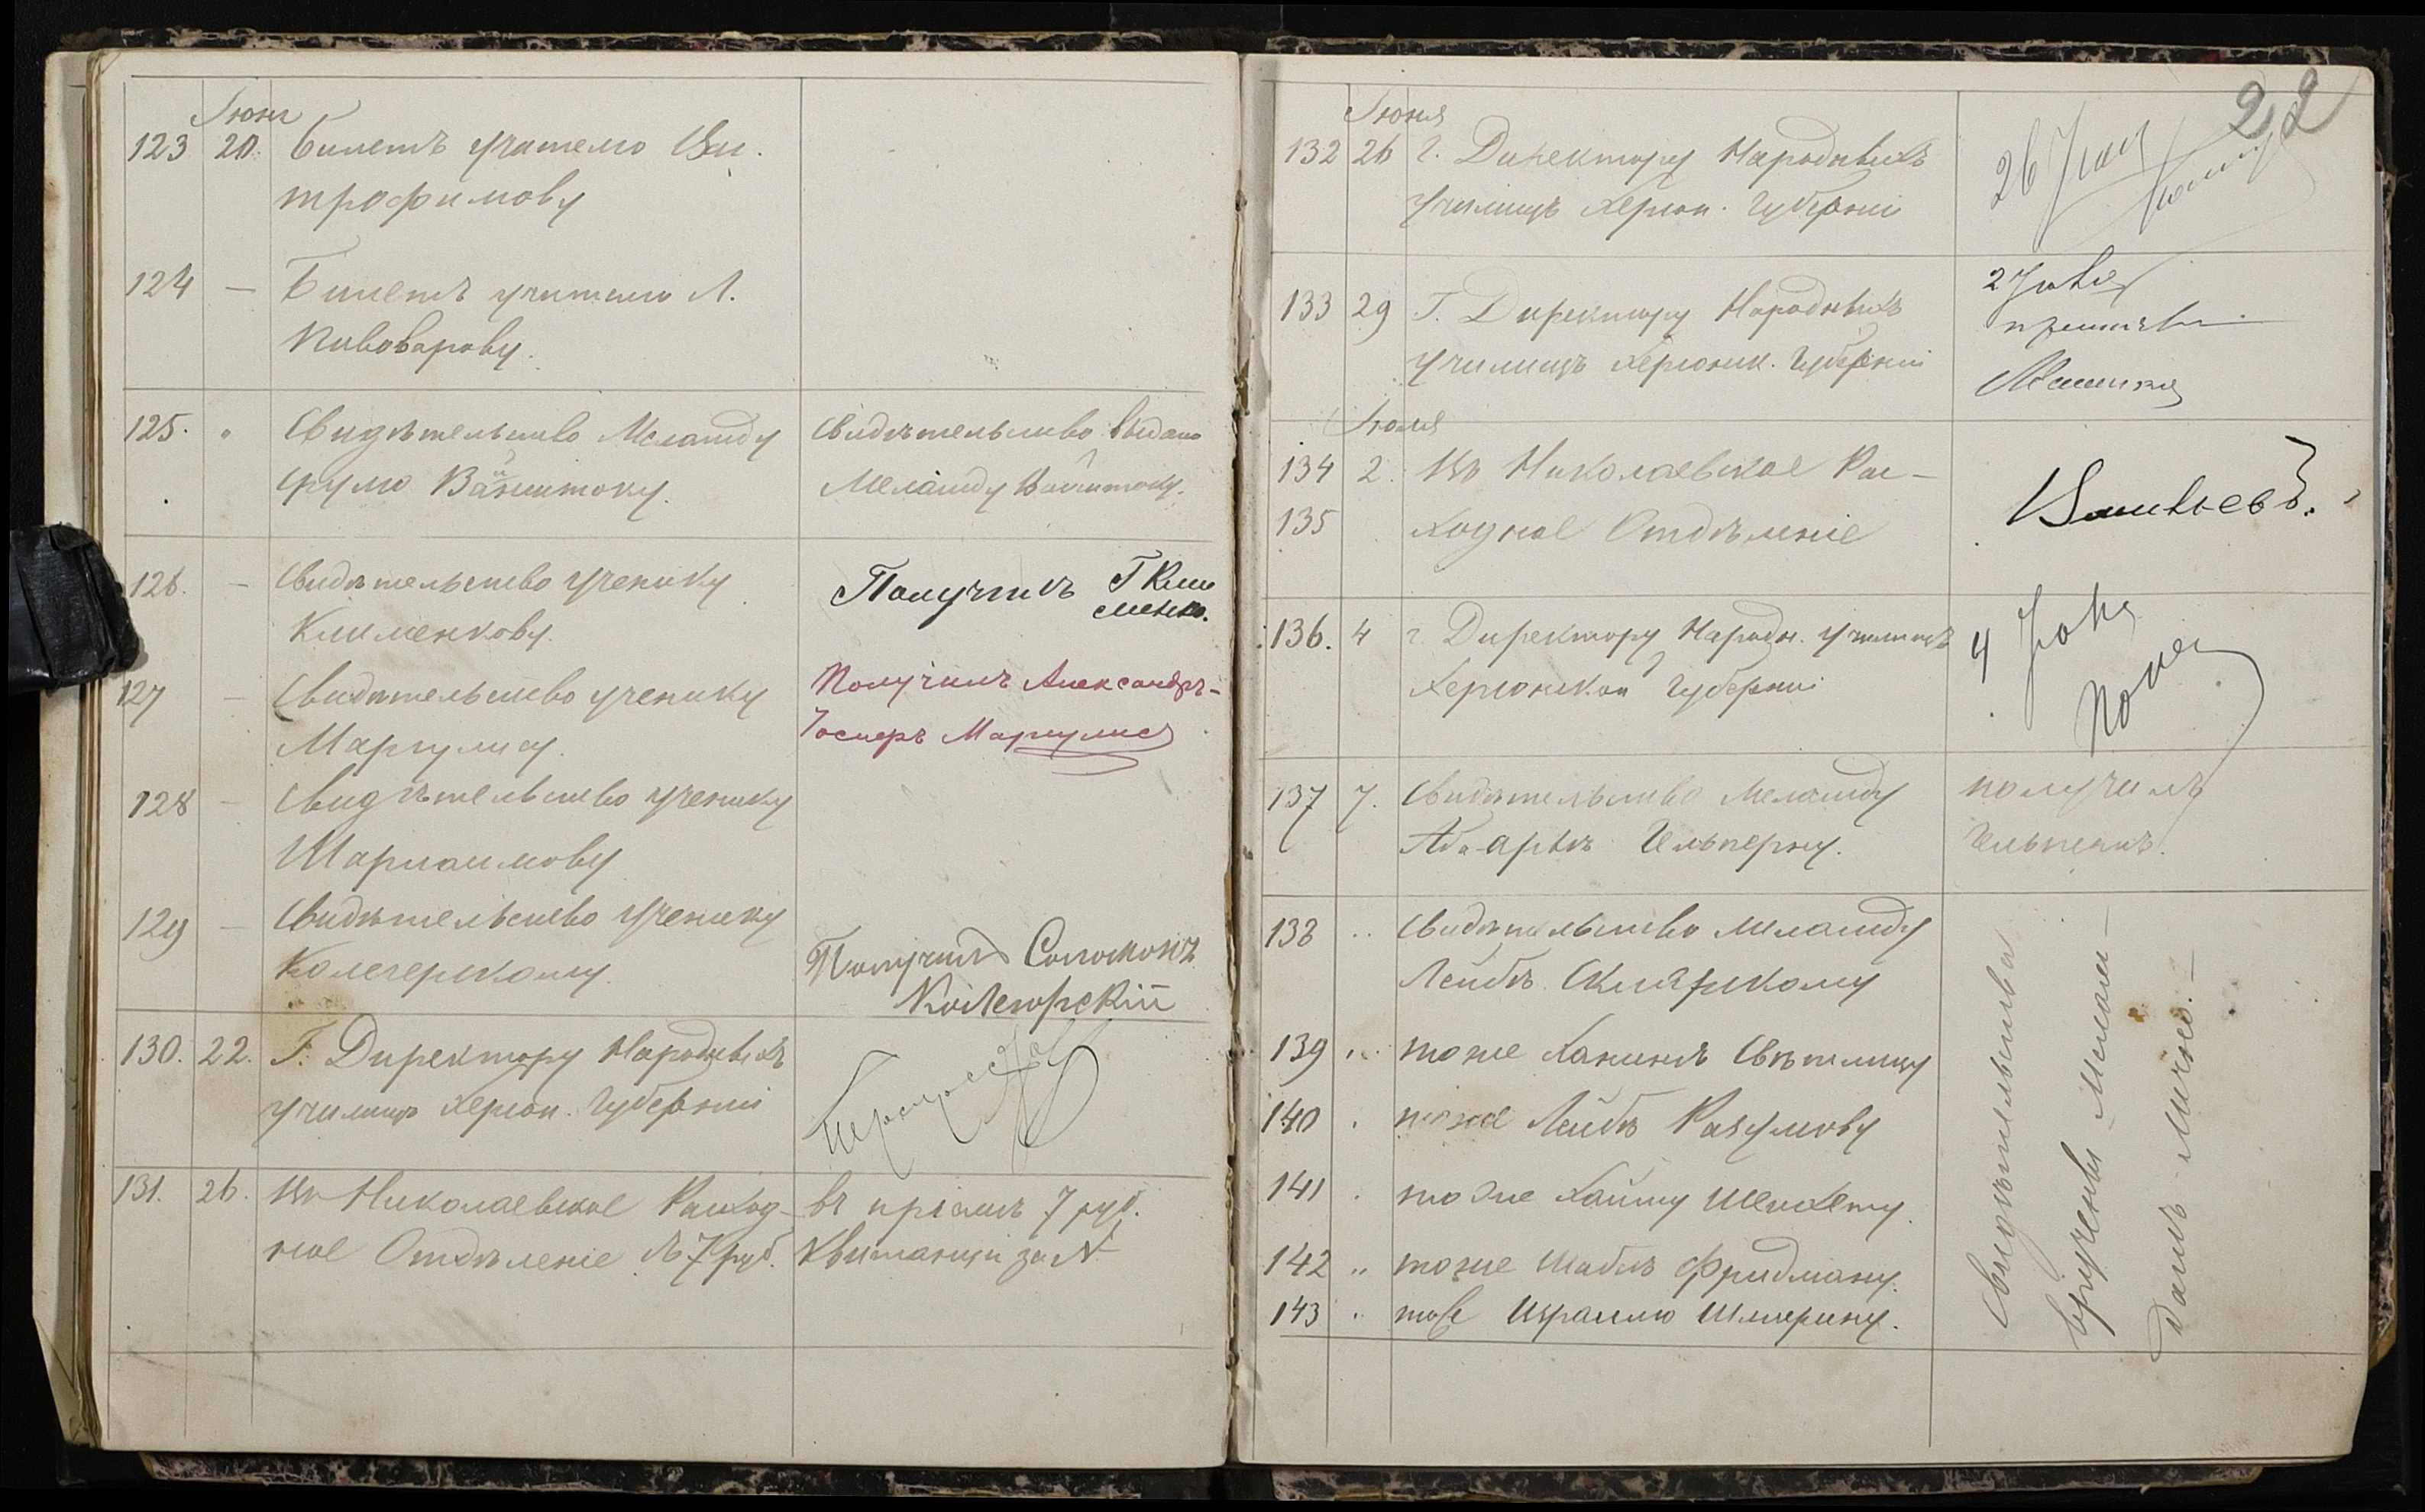 Іюня
123 20. Билетъ учителю Ви.
трофимову
124 — Билетъ учителю Л.
Пивоварову.
125. " Свидѣтельство Меламду
Срулю Вайнштоку.
Свидѣтельство выдано
Меламду Вайнштоку.
126. — Свидѣтельство ученику
Клименкову.
Получилъ Г Кли
менко.
127 — Свидѣтельство ученику
Маргулису.
Получилъ Александръ-
Іосифъ Маргулисъ
128 — Свидѣтельство ученику
129 — Свидѣтельство ученику
Колегорскому.
Получилъ Соломонъ
Колегорскій
130. 22. Г. Директору Народныхъ
училищъ Херсон. Губерніи
131. 26. Въ Николаевское Расход-
ное Отдѣленіе 7 руб.
въ пріемѣ 7 руб.
Квитанція за №
22
Іюня
132 26 Г. Директору Народныхъ
училищъ Херсон. Губерніи
26 Іюня
133 29 Г. Директору Народныхъ
училищъ Херсонск. Губерніи
Іюля
134 2. Въ Николаевское Рас-
135 ходное Отдѣленіе
136. 4 г. Директору Народн. училищъ
Херсонской Губерніи
4
137 7. Свидѣтельство Меламду
Гальперну.
получилъ
138 .. Свидѣтельство Меламду
Лейбѣ
139 .. тоже Ханинѣ Свѣтлицу
140 . тоже Лейбѣ Разумову
141 . тоже Хаиму
142 .. тоже Фридману.
143 .. тоже Израилю
Свидѣтельства
вручены Мелам-
дамъ лично.—